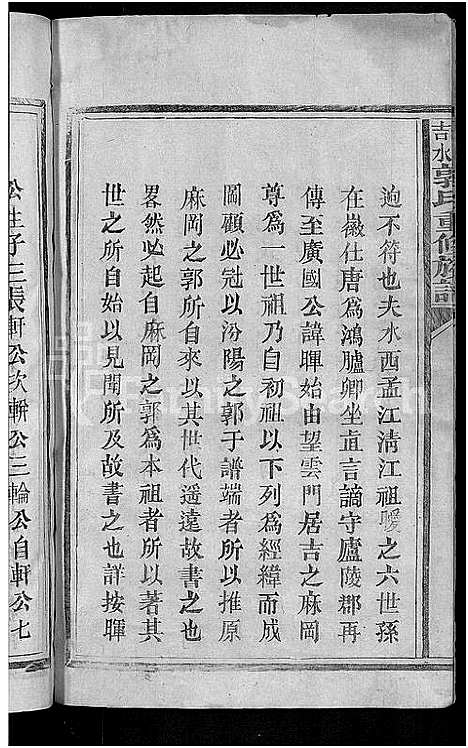 吉水郭氏重修族譜
逈不符也夫水西孟江清江祖曖之六世孫
在徽仕唐為鴻臚卿坐直言謫守廬陵郡再
傳至廣國公諱暉始由望雲門居吉之麻岡
尊為一世祖乃自初祖以下列為經緯而成
圖顧必冠以汾陽之郭于譜端者所以推原
麻岡之郭所自來以其世代遥遠故書之也
畧然必起自麻岡之郭為本祖者所以著其
世之所自始以見聞所及故書之也詳按暉
公生子三長軒公次輧公三輪公自軒公七